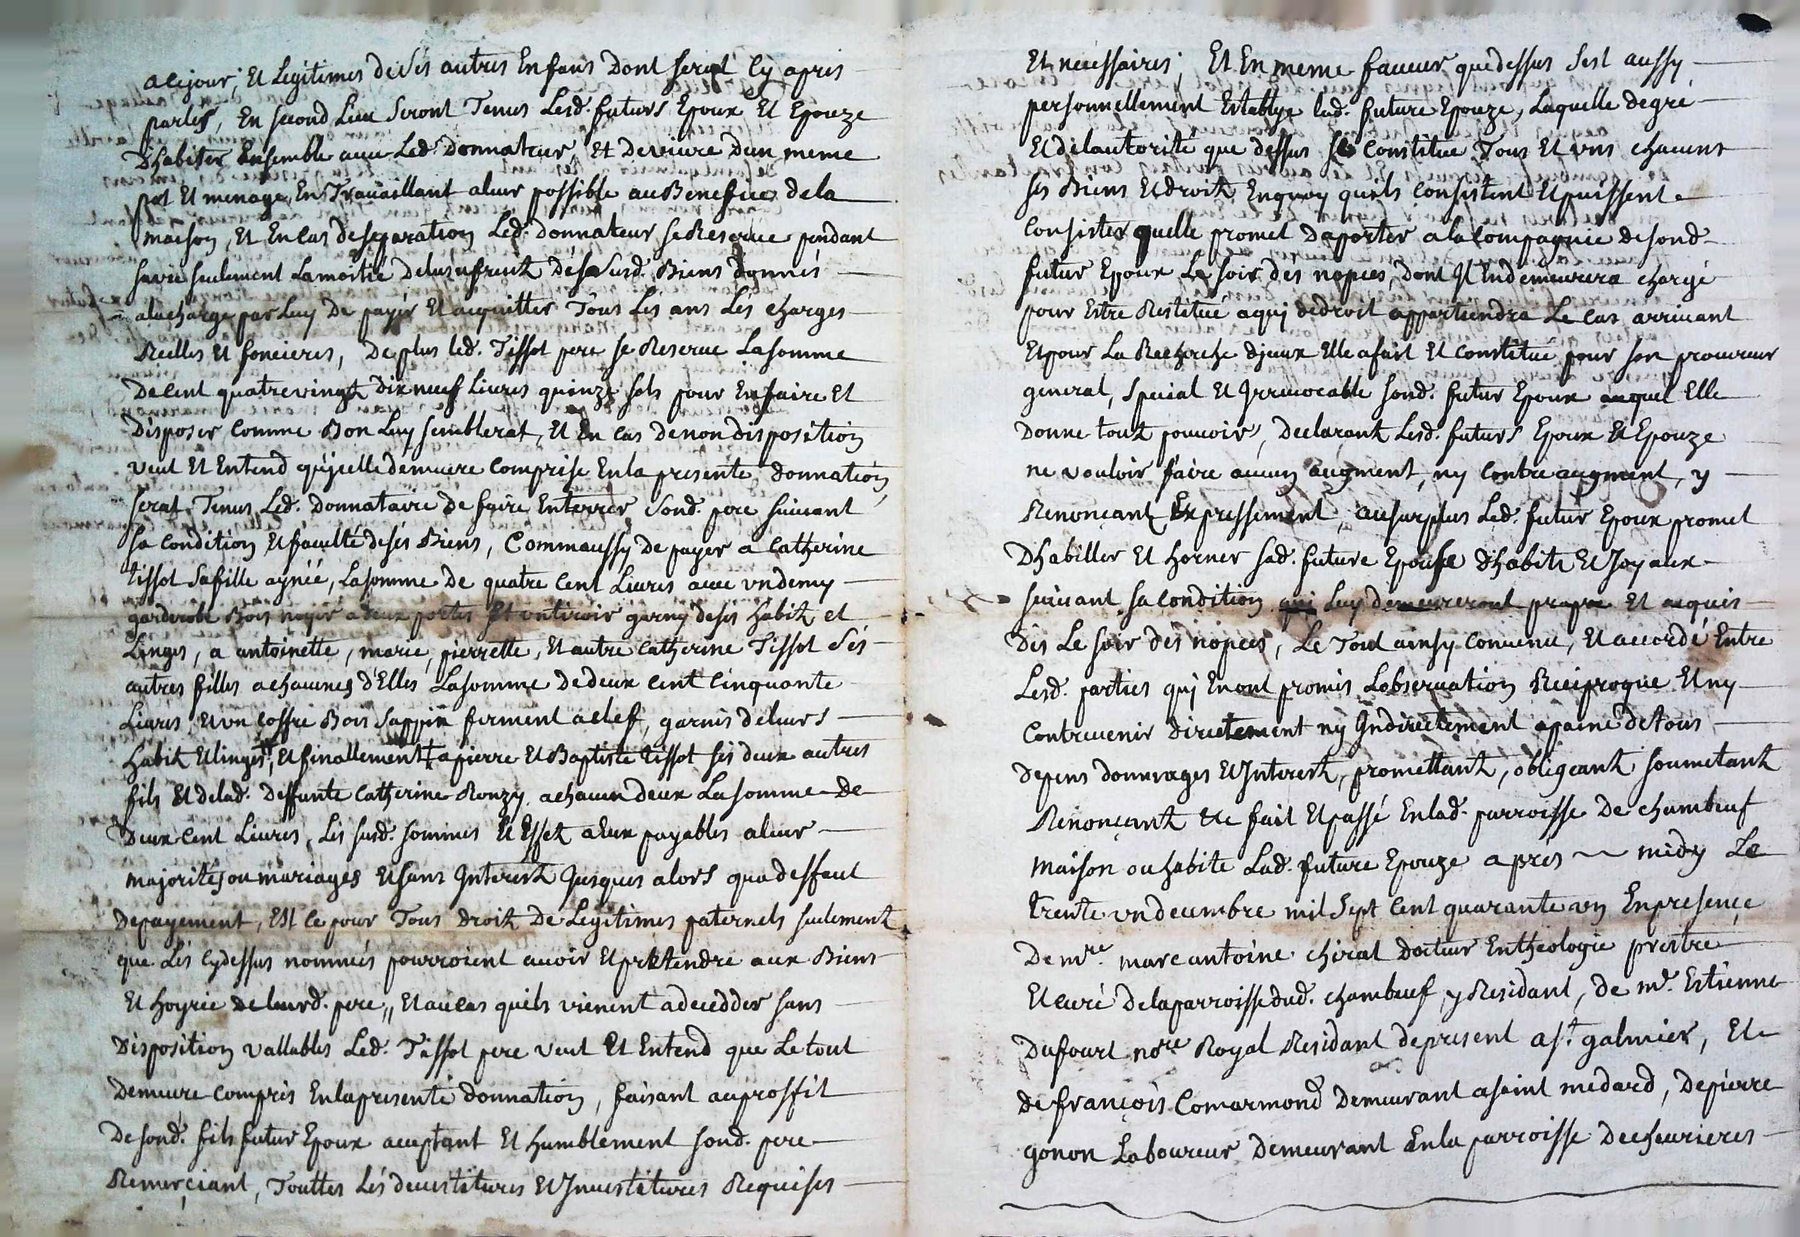 acejour, Et Legitimes de Ses autres Enfans Dont serat Cy apres
parlés, En second Lieu Seront Tenus Lesd. futurs Epoux Et Epouze
Dhabiter Ensemble avec Led. Donnateur, Et De vivre Dun meme
pot Et menage En Travaillant a leur possible au Benefice de la
maison, Et En Cas de separation Led. donnateur se Reserve pendant
sa vie seulement La moitié De lusufruit dés Susd. Biens donnés
a la charge par Luy De payér Et acquitter Tous Les ans Lés Charges
Réelles Et foncieres, De plus led. Tissot pere se Reserve La somme
De Cent quatrevingt dix neuf Livres quinze sols pour En faire Et
Disposer Comme Bon Luy semblerat, Et En Cas De non disposition
veut Et Entend qu'jcelle demeure Comprise En la presente donnation,
serat Tenus Led. Donnataire de faire Enterrer Sond. pere suivant
sa Condition Et faculté de ses Biens, Comm aussy de payer a Catherine
tissot sa fille aynéé, La somme De quatre Cent Livres avec un demy
garderobe Bois noyer a deux portes Et un tiroir garny de ses habits et
Linges, a antoinette, marie, pierrette, Et autre Catherine Tissot Sés
autres filles a chacunes d'Elles La somme De deux Cent Cinquante
Livres Et un Coffre Bois Sappin ferment a clef, garnis de leurs
habits Et linges, Et finallement a pierre Et Baptiste tissot ses deux autres
fils Et de lad. Deffunte Catherine Ronzy a chacun deux La somme De
Deux Cent Livres, Les susd. sommes Et Effets a Eux payables a leur
majorités ou mariages Et sans Interest Jusques alors qua deffaut
De payement, Est Ce pour Tous droits De Legitimes paternels seulement
que Lés Cy dessus nommés pourroient avoir Et pretendre aux Biens
Et hoyrie de leurd. pere, Et au cas quils vienent a decedder sans
Disposition vallables Led. Tissot pere veut Et Entend que Le tout
Demeure compris En la presente donnation, faisant au proffit
De sond. fils futur Epoux acceptant Et humblement sond. pere
Remerçiant, Touttes Lés devestitures Et Investitures Requises
Et necéssaires; Et En meme faveur que dessus Sest aussy
personnellement Establye lad. future Epouze, Laquelle de gré
Et de lautorité que dessus se Constitue Tous Et uns chacuns
ses Biens Et droits En quoy quils Consistent Et puissent
Consister quelle promet Daporter a la Compagnie de sond.
futur Epoux Le soir des nopces, dont Il En demeurera chargé
pour Estre Restitué a qui de droit appartiendra Le Cas arrivant
Et pour La Recherche djceux Elle a fait Et Constitué pour son procureur
general, special Et Irrevocable sond. futur Epoux auquel Elle
Donne tout pouvoir, Declarant Lesd. futurs Epoux Et Epouze
ne vouloir faire aucun augment, ny Contre augment, y
Renonçant Expressement, au surplus Led. futur Epoux promet
Dhabiller Et horner sad. future Epouse d'habits Et Joyaux
suivant sa Condition qui Luy demeureront propre Et acquis
Dés Le soir des nopces, Le Tout ainsy Convenu, Et accordé Entre
Lesd. parties qui En ont promis Lobservation Reciproque Et ny
Contrevenir directement ny Indirectement a paine de tous
depens dommages Et Interests, promettant, obligeant soumetant
Renonçant Etc fait Et passé En lad. parroisse De chambeuf
maison ou habite Lad. future Epouze aprés midy Le
trente un decembre mil Sept Cent quarante un En presençe
De mre. marc antoine chirat Docteur En theologie prestre
Et curé De la parroisse dud. chambeuf y Residant, de me. Estienne
Dufour nore Royal Residant de present a st. galmier, Et
de françois Comarmond Demeurant a saint medard, De pierre
gonon Laboureur Demeurant En la parroisse De chevrieres